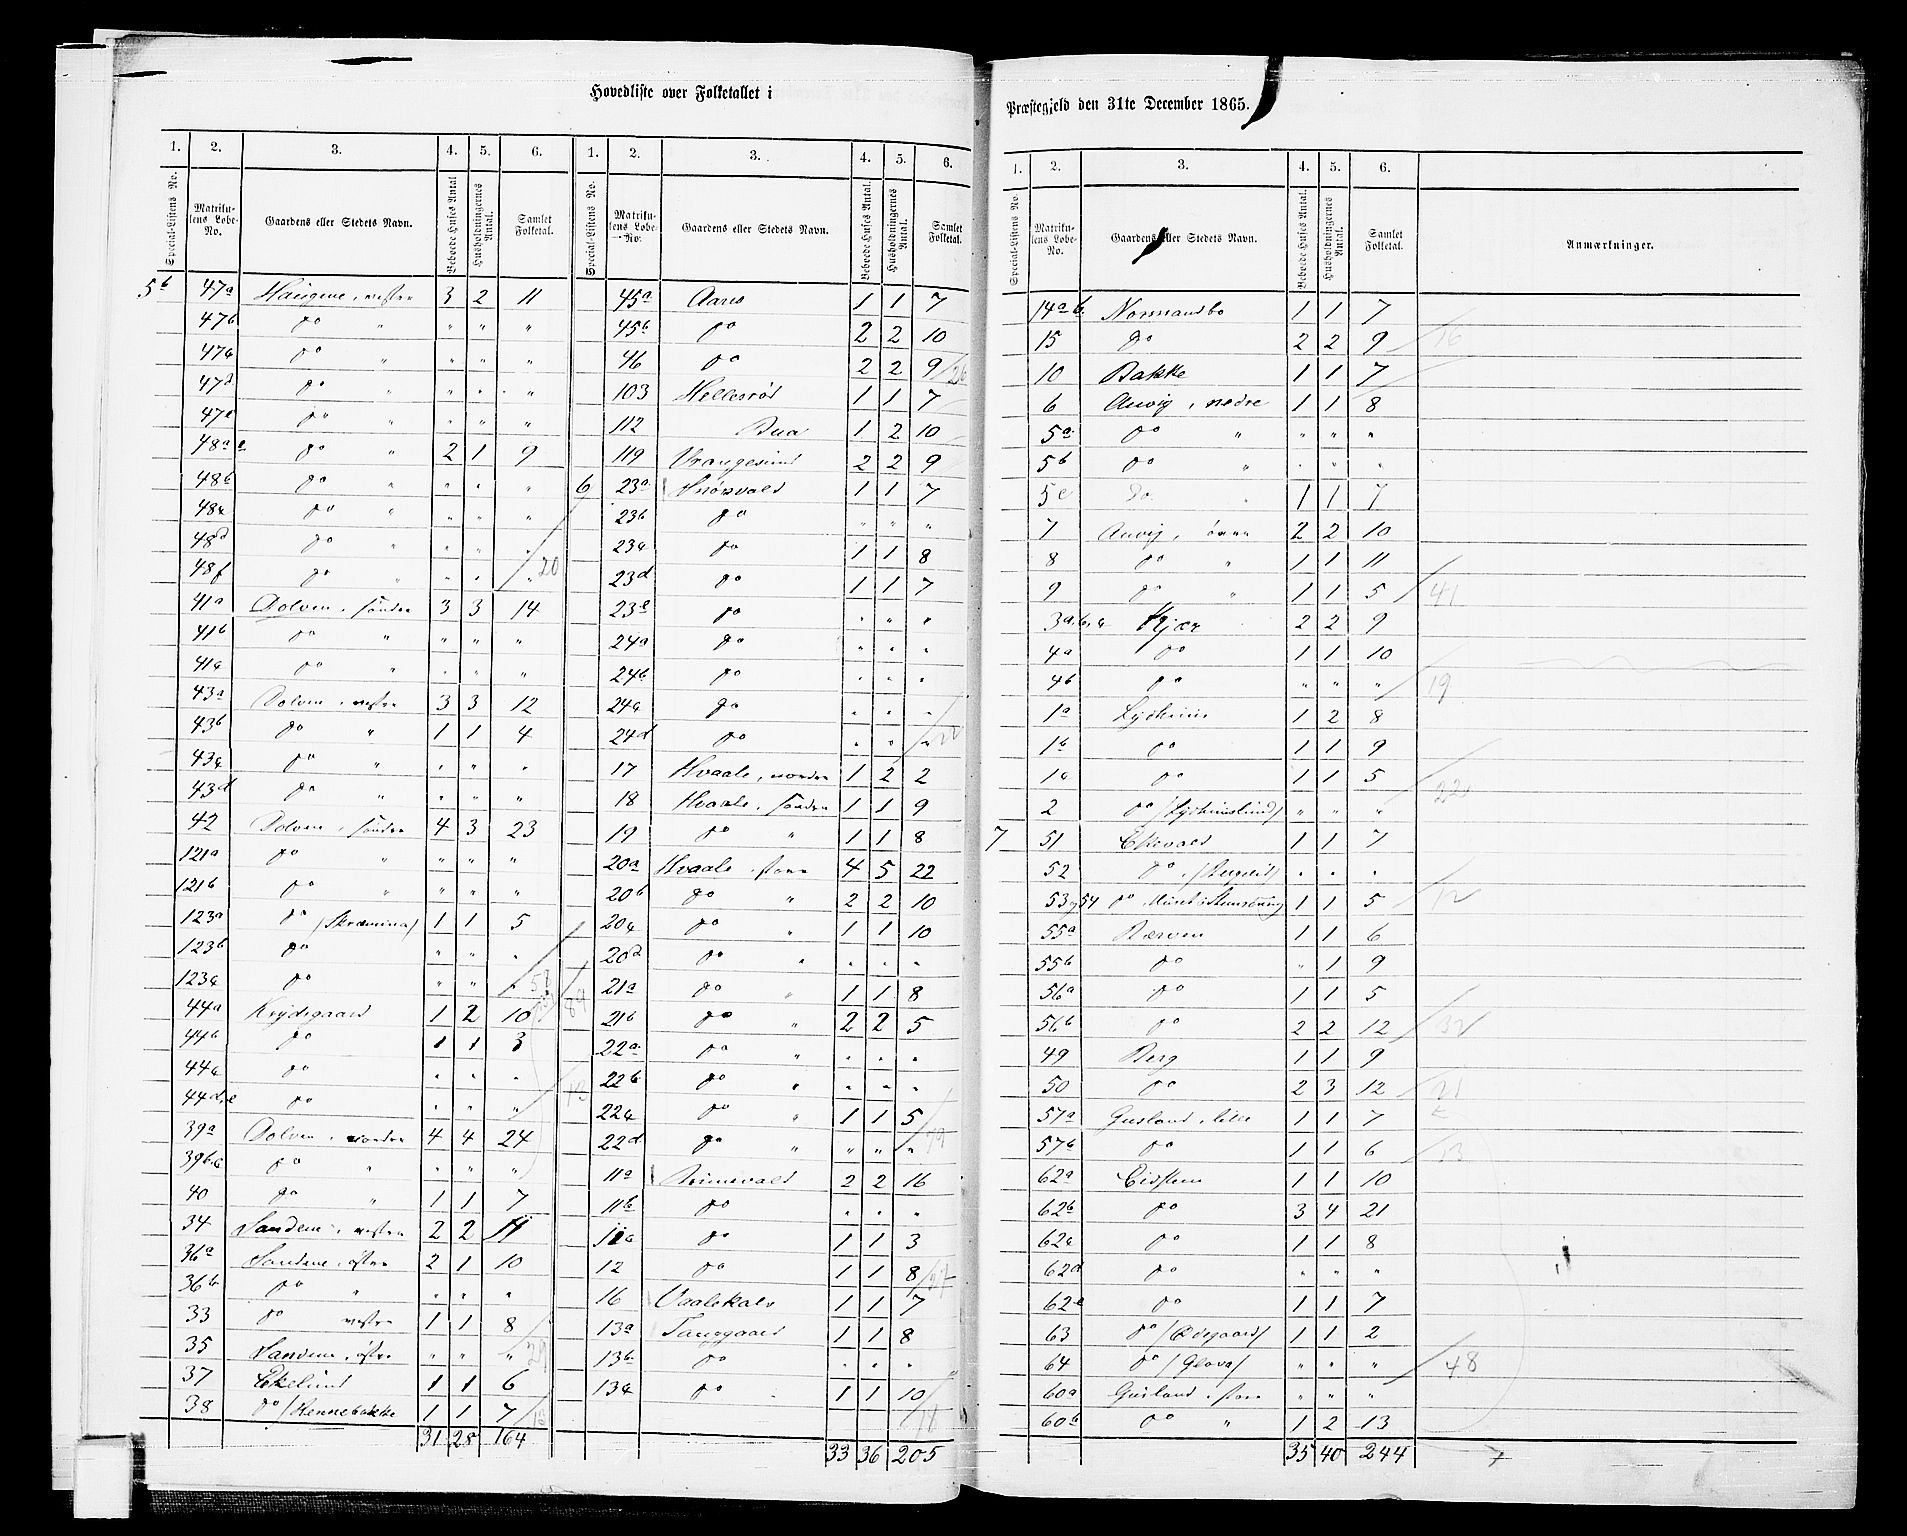 Hovedliste over Folketallet i
Præstegjeld den 31te December 1865.
1. 2. 3. 4. 5. 6. 1. 2. 3. 4. 5. 6.
Special-Listens No. Matrikulens Løbe-No. Gaardens eller Stedets Navn. Beboede Huses Antal Husholdningernes Antal. Samlet Folketal. Special-Listens No. Matrikulens Løbe-No. Gaardens eller Stedets Navn. Beboede Huses Antal. Husholdningernes Antal. Samlet Folketal.
5b 47a Haugene, vestre 3 2 11
47b do " " " "
47c do " " " "
47d do " " " "
47e do " " " "
48a e do " 2 1 9
48b do " " " "
48c do " " " "
48d do " " " "
48f do " " " " 20
41a Dolven, søndre 3 3 14
41b do " " " "
41c do " " " "
43a Dolven, vestre 3 3 12
43b do " 1 1 4
43c do " " " "
43d do " " " "
42 Dolven, søndre 4 3 23
121a do " " " "
121b do " " " "
123a do /Skræmina/ 1 1 5
123b do " " "
123c do " " "
44a Krydsgaard 1 2 10
44b do 1 1 3
44c do " " "
44d,e do " " "
39a Dolven, nordre 4 4 24
39b.c do " " " "
40 do " 1 1 7
34 Sandene, vestre 2 2 11
36a Sandene, østre 2 1 10
36b do " " " "
33 do vestre 1 1 8
35 Sandene, østre " " " 29
37 Ekelund 1 1 6
38 do /Hennebakke 1 1 7
31 28 164
45a Aares 1 1 7
45b do 2 2 10
46 do 2 2 9 26
103 Hellesrød 1 1 7
112 Bua 1 2 10
119 Vrangesund 2 2 9
6 23a Snørvald 1 1 7
23b do " " "
23c do 1 1 8
23d do 1 1 7
23e do " " "
24a do " " "
24b do " " "
24c do " " "
24d do " " " 22
17 Hvaale, nordre 1 2 2
18 Hvaale, søndre 1 1 9
19 do " 1 1 8
20a Hvaale, store 4 5 22
20b do " 2 2 10
20c do " 1 1 10
20d do " " " "
21a do " 1 1 8
21b do " 2 2 5
22a do " " " "
22b do " " " "
22c do " 1 1 5
22d do " " " "
11a Rimevald 2 2 16
11b do " " "
11c do 1 1 3
12 do 1 1 8 27
16 Vaalekals 1 1 7
13a Tanggaard 1 1 8
13b do " " "
13c do 1 1 10
33 36 205
1. 2. 3. 4. 5. 6.
Special-Listens No. Matrikulens Løbe-No. Gaardens eller Stedets Navn. Beboede Huses Antal. Husholdningernes Antal. Samlet Folketal. Anmærkninger.
14a b. Normandbo 1 1 7
15 do 2 2 9 16
10 Bakke 1 1 7
6 Auvig, nedre 1 1 8
5a do " " " "
5b do " " " "
5c do " 1 1 7
7 Auvig, øvre 2 2 10
8 do " 1 1 11
9 do " 1 1 5 41
3a.b.c Kjær 2 2 9
4a do 1 1 10
4b do " " " 19
1a Lysheim 1 2 8
1b do 1 1 9
1c do 1 1 5
2 do /Lysheimslund/ " " " 22
7 51 Ekevald 1 1 7
52 do " " "
53,54 do 1 1 5 12
55a Rærven 1 1 6
55b do " 1 9
56a do 1 1 5
56b do 2 2 12 32
49 Berg 1 1 9
50 do 2 3 12 21
57a Gusland, lille 1 1 7
57b do 1 1 6 13
62a Eidsten 1 1 10
62b do 3 4 21
62c do 1 1 8
62d do " " "
62e do 1 1 7
63 do /Ødegaard/ 1 1 2
64 do /Glova/ " " " 48
60a Gusland, store " " "
60b do " 1 2 13
35 40 244